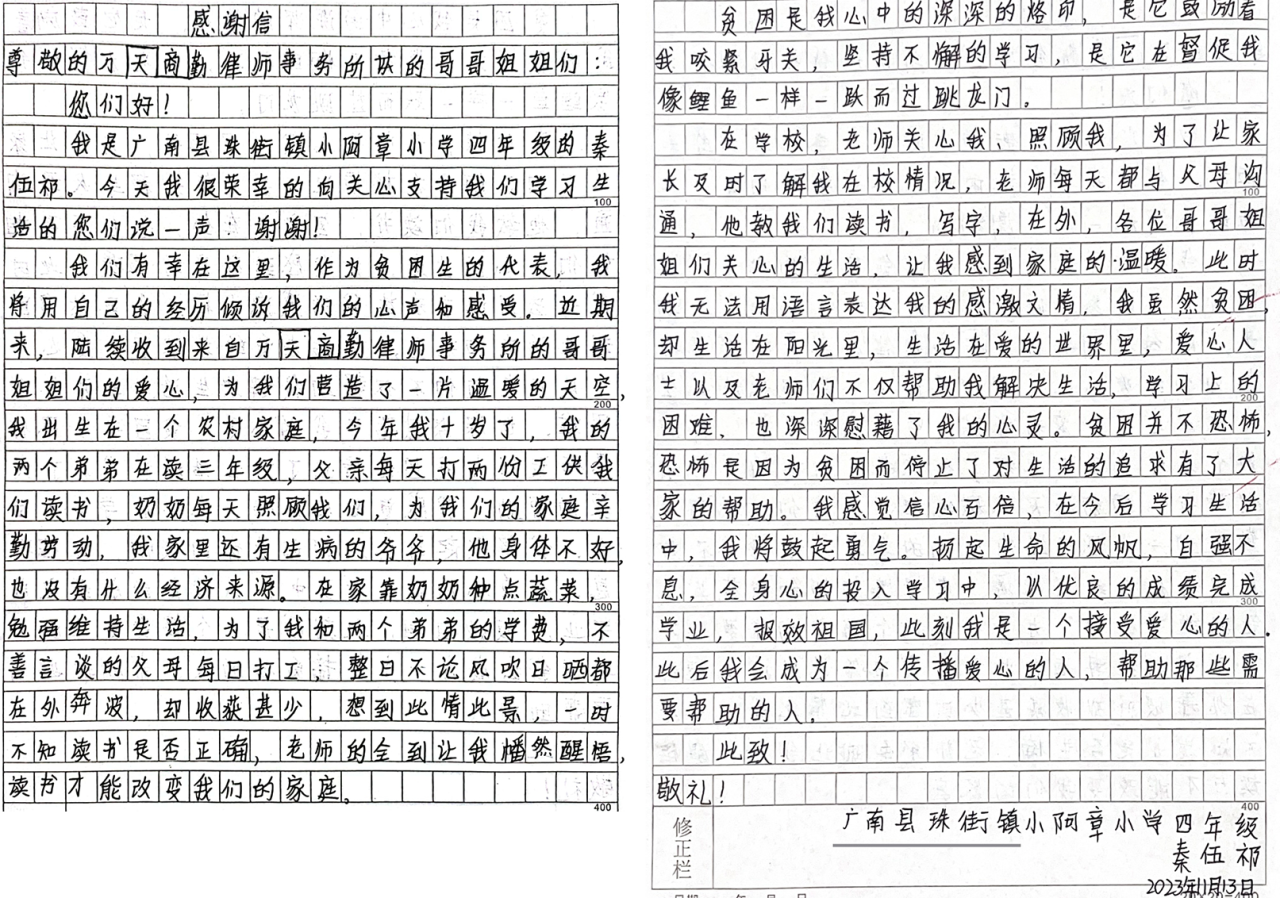 感谢信
尊敬的万天商勤律师事务所的哥哥姐姐们：
您们好！
我是广南县珠街镇小阿章小学四年级的秦
伍祁。今天我很荣幸的向关心支持我们学习生
100
活的您们说一声：谢谢！
我们有幸在这里，作为贫困生的代表，我
将用自己的经历倾诉我们的心声和感受。近期
来，陆续收到来自万天商勤律师事务所的哥哥
姐姐们的爱心，为我们营造了一片温暖的天空，
200
我出生在一个农村家庭，今年我十岁了，我的
两个弟弟在读三年级，父亲每天打两份工供我
们读书，奶奶每天照顾我们，为我们的家庭辛
勤劳动，我家里还有生病的爷爷，他身体不好，
也没有什么经济来源。在家靠奶奶种点蔬菜，
300
勉强维持生活，为了我和两个弟弟的学费，不
善言谈的父母每日打工，整日不论风吹日晒都
在外奔波，却收获甚少，想到此情此景，一时
不知读书是否正确，老师的全到让我幡然醒悟，
读书才能改变我们的家庭。
400
贫困是我心中的深深的烙印，是它鼓励着
我咬紧牙关，坚持不懈的学习，是它在督促我
像鲤鱼一样一跃而过跳龙门。
在学校，老师关心我、照顾我，为了让家
长及时了解我在校情况，老师每天都与父母沟
100
通，他教我们读书，写字，在外，各位哥哥姐
姐们关心的生活，让我感到家庭的温暖。此时
我无法用语言表达我的感激之情，我虽然贫困，
却生活在阳光里，生活在爱的世界里，爱心人
士以及老师们不仅帮助我解决生活，学习上的
200
困难，也深深慰藉了我的心灵。贫困并不恐怖，
恐怖是因为贫困而停止了对生活的追求有了大
家的帮助。我感觉信心百倍，在今后学习生活
中，我将鼓起勇气。扬起生命的风帆，自强不
息，全身心的投入学习中，以优良的成绩完成
300
学业，报效祖国，此刻我是一个接受爱心的人．
此后我会成为一个传播爱心的人，帮助那些需
要帮助的人．
此致！
敬礼！
400
修正栏
广南县珠街镇小阿章小学四年级
秦伍祁
2023年11月13日